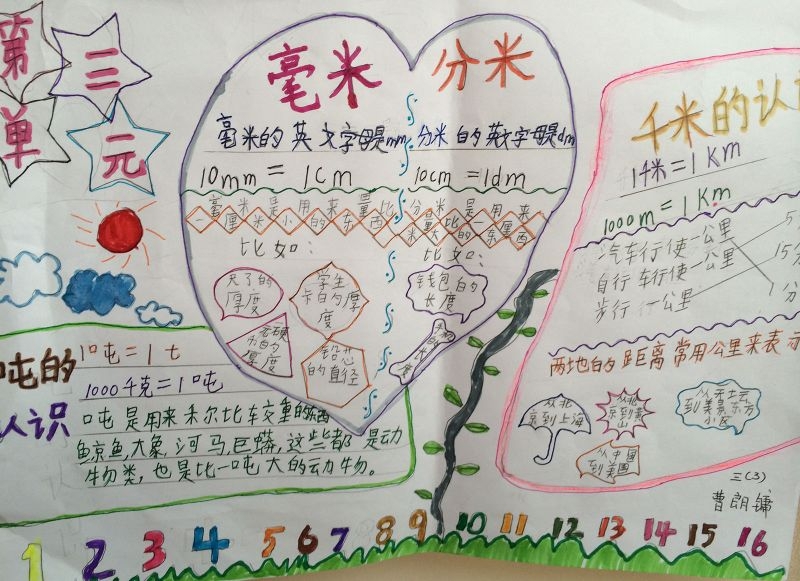 第三
单元
毫米
毫米的英文字母是mm
10mm = 1cm
毫米是用来量比
一厘米小的东西
比如：
尺子的
厚度
学生
卡的厚
度
硬
币的
厚度
铅芯
的直径
分米
分米的英文字母是dm
10cm = 1dm
分米是用来
量比
米大的东西
比如：
钱包的
长度
吨的
认识
1吨 = 1 t
1000千克 = 1吨
吨是用来
比车交重的
鲸鱼,大象,河马,巨蟒,这些都是动
物类，也是比一吨大的动物。
千米的认
1千米 = 1 Km
1000m = 1 Km
汽车行使一公里
自行车行使一公里
步行一公里
5
15分
1分
两地的距离常用公里来表示
从北
京到上海
从北
京到
山
从中国
到美国
从
到 东方
小区
三(3)
曹朗镛
1 2 3 4 5 6 7 8 9 10 11 12 13 14 15 16